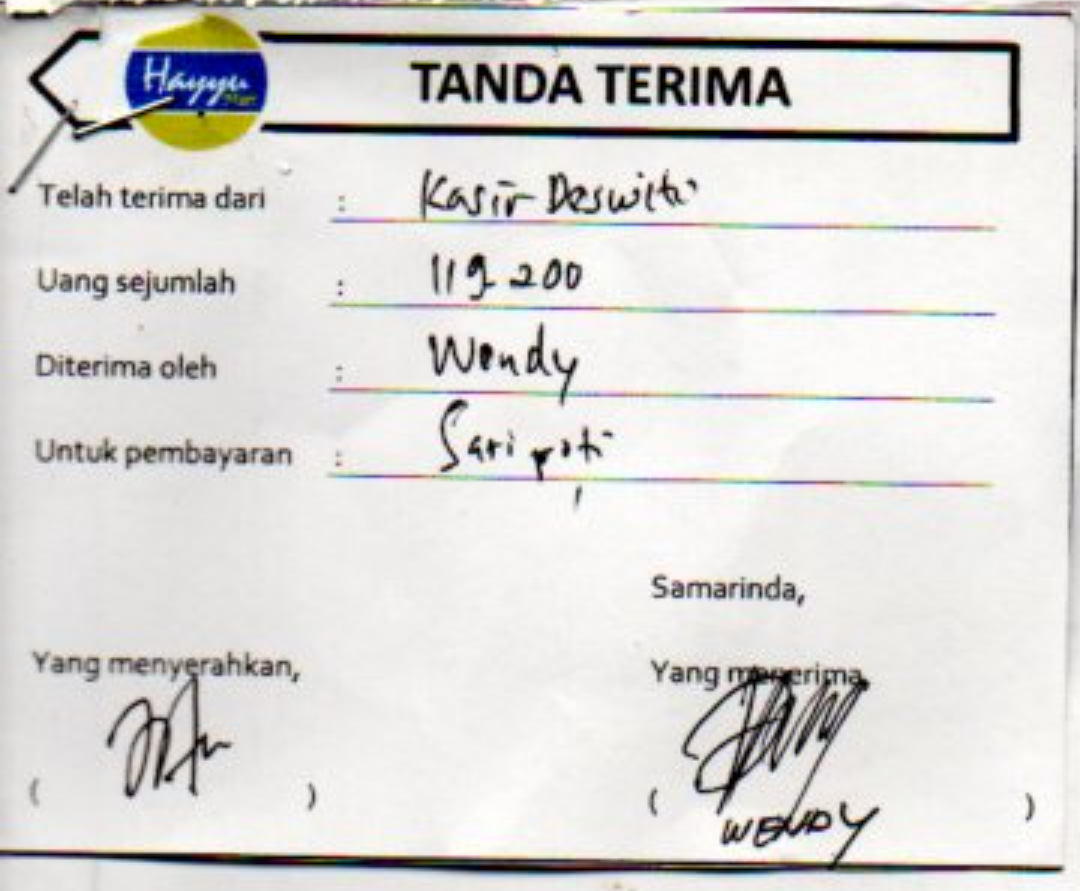 Hayyu
Mart
TANDA TERIMA
Telah terima dari : Kasir Deswiti
Uang sejumlah : 119.200
Diterima oleh : Wendy
Untuk pembayaran : Sari roti
Samarinda,
Yang menyerahkan,
Yang menerima
( )
( WENDY )